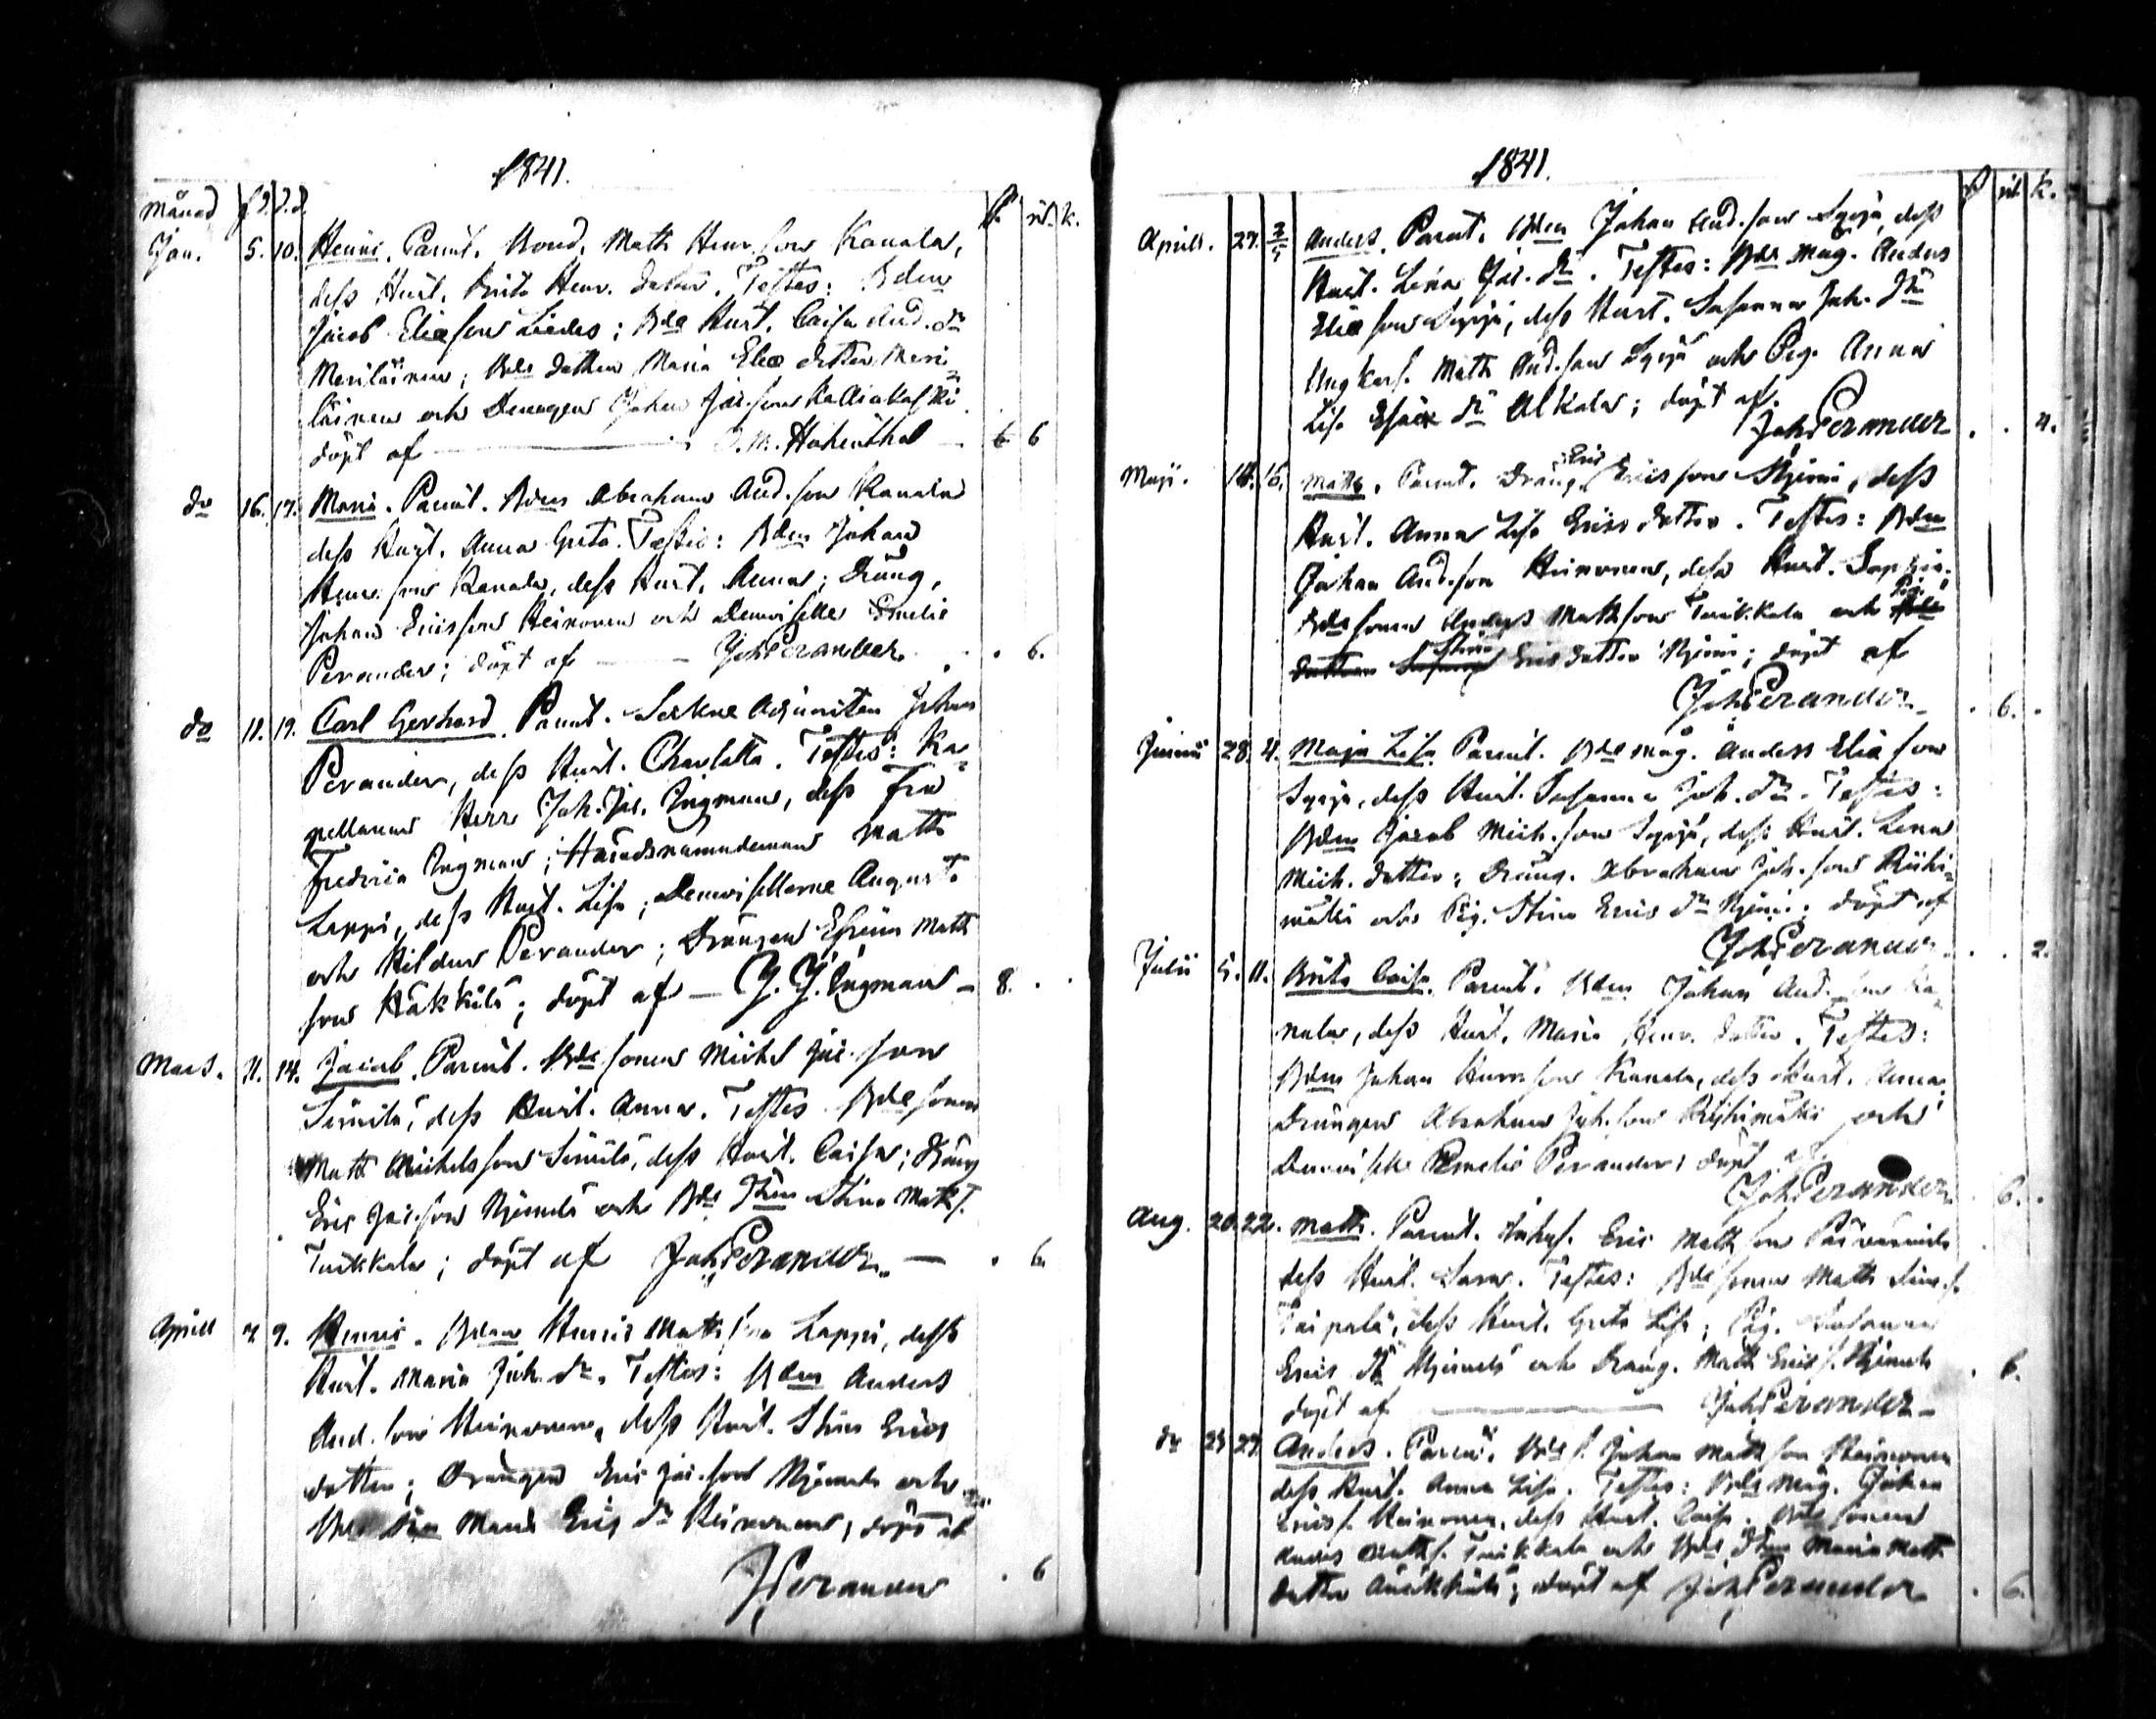 1841.
Månad f.D. d.d. rub. k.
Jan. 5. 10. Henric. Parent. Bond. Math Henr. son Kanala,
dess Hust. Brita Henr. dotter. Testes: Bden
Jacob Eliæ son Liedes; Bde Hust. Caisa And. dr
Meriläinen; Bde dottren Maria Eliæ dotter Meri-
läinen och Drengen Johan Jac. son Kalliokoski
döpt af J. M. Hohenthal 6 6
do 16. 17. Maria. Parent. Bden Abraham And. son Kanala
dess Hust. Anna Greta. Testes: Bden Johan
Henr. son Kanala, dess Hust. Anna; Dräng.
Johan Ericsson Heinonen och Demoiselle Emelie
Perander; döpt af Joh Perander 6.
do 11. 19. Carl Gerhard. Parent. Sockne Adjuncten Johan
Perander, dess Hust. Charlotta. Testes: Ka-
pellanen Herr Joh. Jac. Ingman, dess Fru
Fredrica Ingman; Häradsnämndeman Matts
Lappi, dess Hust. Lisa; Demoisellerne Augusta
och Hilda Perander; Drängen Efraim Matts
son Häkkilä; döpt af J. J. Ingman 8.
Mars. 11. 14. Jacob. Parent. Bde sonen Michel Jac. son
Simila, dess Hust. Anna. Testes Bde sonen
Matts Michelsson Similä, dess Hust. Caisa; Dräng
Eric Jac. son och Bde Dtren Stina Matts.
Tuikkala; döpt af Joh Perander 6.
Aprill 7. 9. Henric. Bden Henric Matts son Lappi, dess
Hust. Maria Joh. dr. Testes: Bden Anders
And. son Heinonen, dess Hust. Stina Erics
dotter; Drängen Eric Jac. son och
Bde Eric dr Heinonen, döpt af
J Perander 6
1841.
rub. k.
Aprill. 27. 2/5 Anders. Parent. Bden Johan And. son Syrjä, dess
Hust. Lena Jac. dr. Testes: Bde mag. Anders
Eliæ son Syrjä, dess Hust. Susanna Joh. dr
Ungkarl. Matts And. son Syrjä och Pig. Anna
Lisa dr Alkula; döpt af
Joh Perander 4.
Maji. 14. 16. Matts. Parent. Dräng. Eric Ericsson dess
Hust. Anna Lisa Erics dotter. Testes: Bden
Johan And. son Heinonen, dess Hust. Sophia.
Bde sonen Anders Mattsson Tuikkala och Pig.
Stina Eric dotter döpt af
Joh Perander 6.
Junii 28. 4. Maja Lisa Parent. Bde mag. Anders Eliæ son
Syrjä, dess Hust. Susanna Joh. dr. Testes:
Bden Jacob Mich. son Syrjä, dess Hust. Lena
Mich. dotter; Dräng. Abraham Joh. son Riihi-
mäki och Pig. Stina Erics dr döpt af
Joh Perander 2.
Julii 5. 11. Brita Caisa. Parent. Bden Johan And. son Ka-
nala, dess Hust. Maria Henr. dotter. Testes:
Bden Johan Henr. son Kanala, dess Hust. Anna
Drängen Abraham Joh. son Riihimäki och
Demoiselle Emelie Perander; döpt af
Joh Perander 6.
Aug. 20. 22. Matts. Parent. Inhys. Eric Matts son
dess Hust. Sara. Testes: Bde sonen Matts Sim. s.
Taipale, dess Hust. Greta Lisa; Pig. Susanna
Eric dr och Dräng. Matts Eric s.
döpt af Joh Perander 6.
do 27. Anders. Parent. Bde s. Johan Matts son Heinonen
dess Hust. Anna Lisa. Testes: Bde mag. Johan
Erics s. Heinonen, dess Hust. Caisa. Bde sonen
Anders Matts s. Tuikkala och Bde Dtren Maria Matts
dotter döpt af Joh Perander 6.